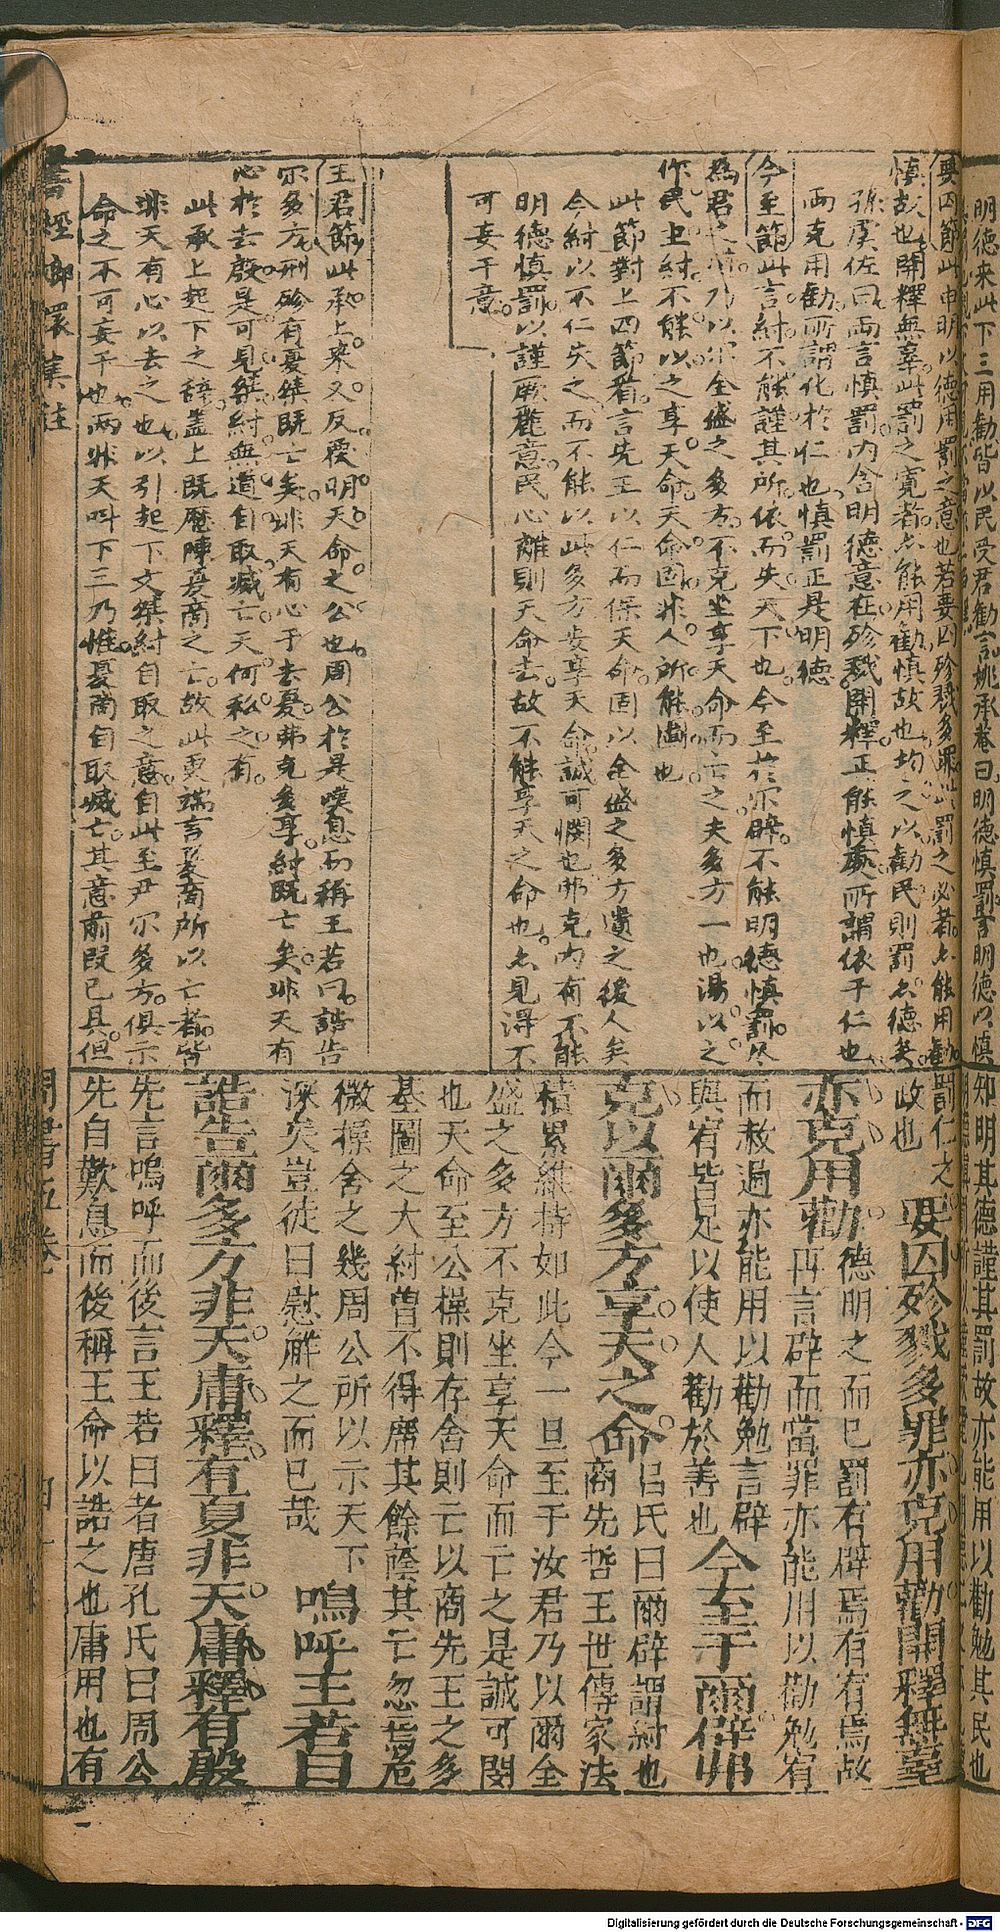 要囚節此申明以德用罰之意也若要囚殄戮多罪此罰之必者亦能用勸
慎故也開釋無辜此罰之寬者亦能用勸慎故也均之以勸民則罰亦德矣
孫虞佐曰兩言慎罰內含明德意在殄戮開釋正能慎處所謂依于仁也
兩克用勸所謂化於仁也慎罰正是明德
今至節此言紂不能謹其所依而失天下也今至於尔辟不能明德慎罰
為君乃以尔全盛之多方不克坐享天命而亡之夫多方一也湯以之
作民主紂不能以之享天命天命固非人所能也
此節對上四節看言先王以仁而保天命固以全盛之多方遺之後人矣
今紂以不仁失之而不能以此多方安享天命誠可憫也弗克內有不能
明德慎罰以謹厥麗意民心離則天命去故不能享天之命也亦見得不
可妄干意
王君節此承上來又反覆明天命之公也周公於是嘆息而稱王若曰誥告
尔多方刑殄有夏桀既亡矣非天有心于去夏弗克多享紂既亡矣非天有
心於去殷是可見桀紂無道自取滅亡天何私之有
此承上起下之辞盖上既歷陳夏商之亡故此更端言夏商所以亡者皆
非天有心以去之也以引起下文桀紂自取之意自此至尹尔多方俱示
命之不可妄干也兩非天呌下三乃惟夏商自取滅亡其意前段已具但
罰仁之
政也 要囚殄戮多罪亦克用勸開釋無辜
亦克用勸 德明之而已罰有辟焉有宥焉故
再言辟而當罪亦能用以勸勉宥
而赦過亦能用以勸勉言辟
與宥皆足以使人勸於善也 今至于爾辟弗
克以爾多方享天之命 呂氏曰爾辟謂紂也
商先哲王世傳家法
積累維持如此今一旦至于汝君乃以爾全
盛之多方不克坐享天命而亡之是誠可閔
也天命至公操則存舍則亡以商先王之多
基圖之大紂曾不得席其餘蔭其亡忽焉危
微操舍之幾周公所以示天下
深矣豈徒曰慰解之而已哉 嗚呼王若曰
誥告爾多方非天庸釋有夏非天庸釋有殷
先言嗚呼而後言王若曰者唐孔氏曰周公
先自歎息而後稱王命以誥之也庸用也有
書經 集註
周書五卷
明德來此下三用勸皆以民受君勸言姚承菴曰明德慎罰言明德以慎
知明其德謹其罰故亦能用以勸勉其民也
Digitalisierung gefördert durch die Deutsche Forschungsgemeinschaft - DFG